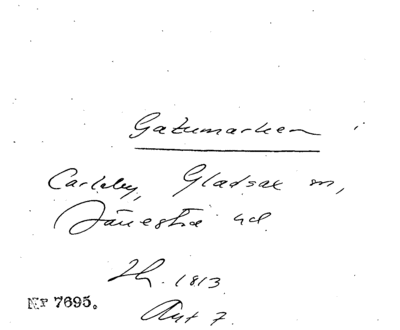 Gatumarken
Carlsby, Gladsax sn,
Järrestad hd
Lh. 1813
Akt 7.
Nr 7695.